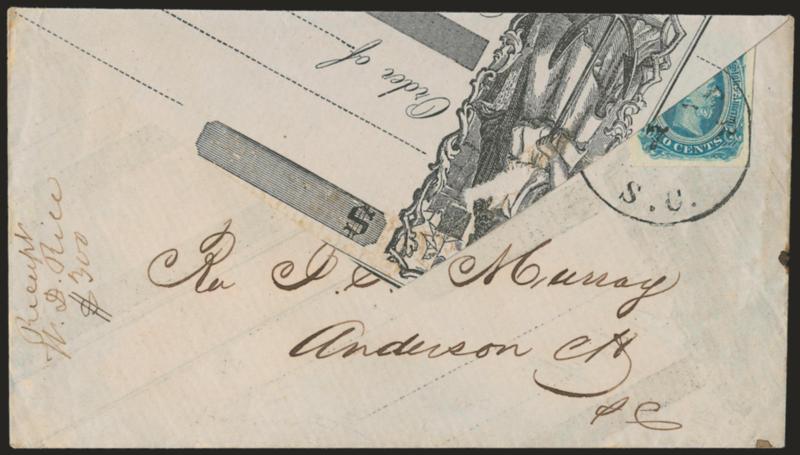 Order of
0 CENTS
S. C.
Receipt
W. D. Rice
$300
Rev J. S. Murray
Anderson CH
S C